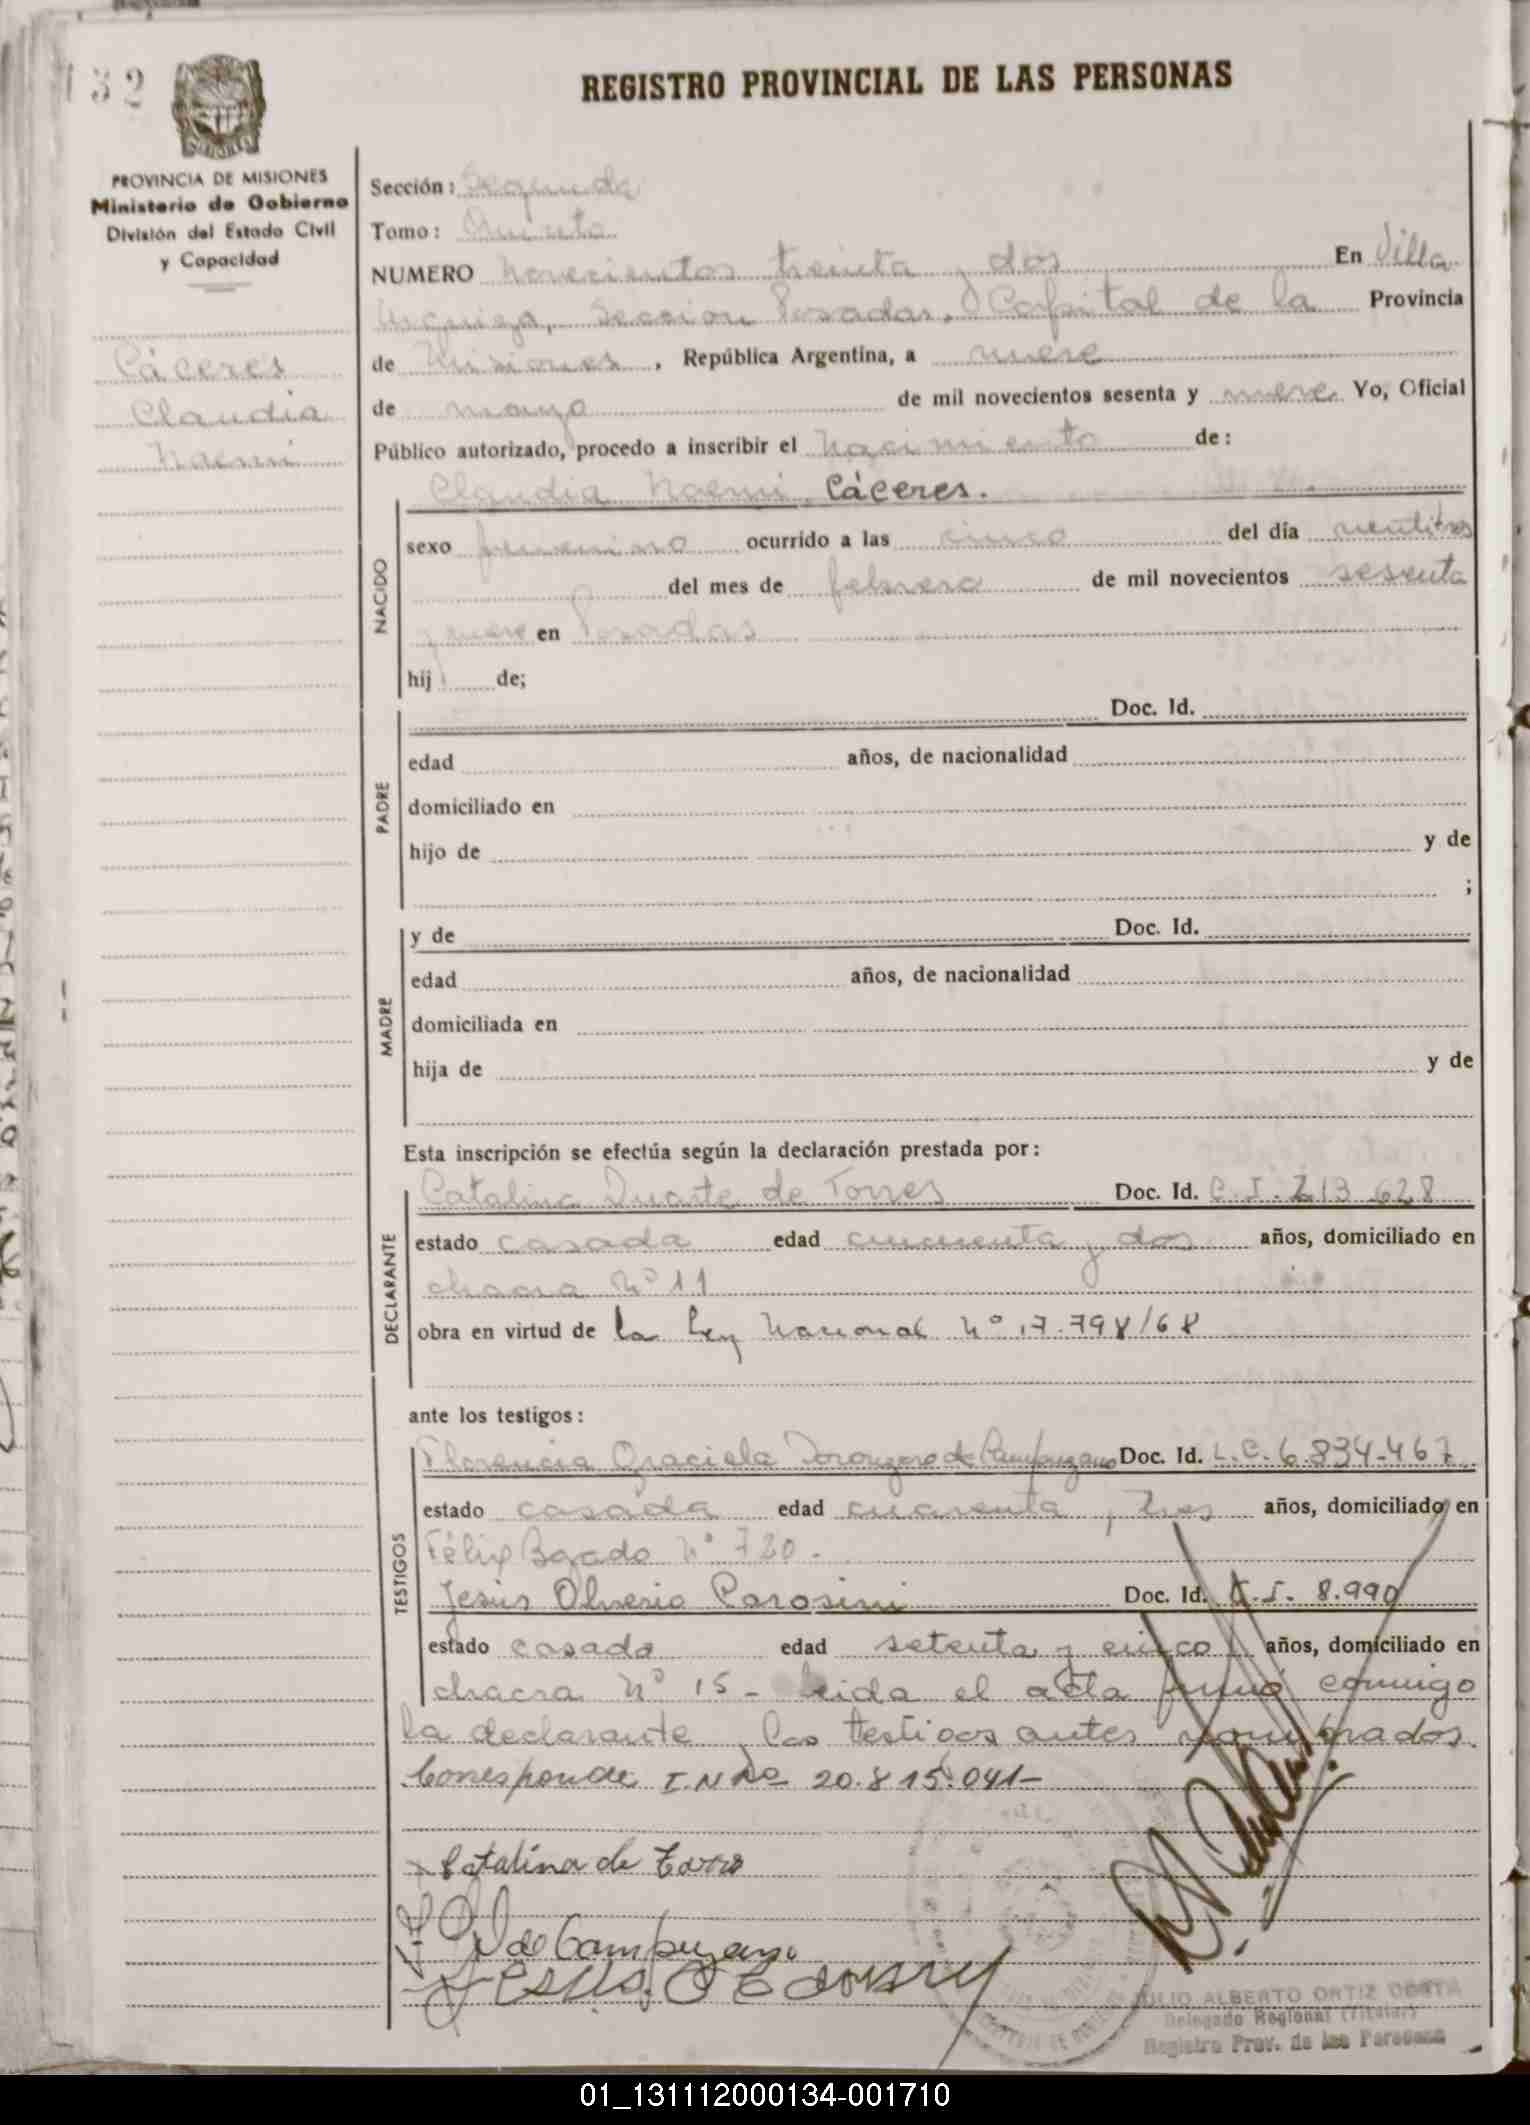 132
REGISTRO PROVINCIAL DE LAS PERSONAS
PROVINCIA DE MISIONES
Ministerio de Gobierno
División del Estado Civil
y Capacidad
Cáceres
Claudia
Naemi
Sección: Segunda
Tomo: Quinto
NUMERO novecientos treinta y dos En Villa
Urquiza, Sección Posadas, Capital de la Provincia
de Misiones, República Argentina, a nueve
de mayo de mil novecientos sesenta y nueve Yo, Oficial
Público autorizado, procedo a inscribir el nacimiento de:
Claudia Naemi Cáceres.
NACIDO
sexo femenino ocurrido a las cinco del día veintitres
del mes de febrero de mil novecientos sesenta
y nueve en Posadas
hij de;
PADRE
Doc. Id.
edad años, de nacionalidad
domiciliado en
hijo de y de
;
MADRE
y de Doc. Id.
edad años, de nacionalidad
domiciliada en
hija de y de
Esta inscripción se efectúa según la declaración prestada por:
DECLARANTE
Catalina Duarte de Torres Doc. Id. C.I. 213.628
estado casada edad cincuenta y dos años, domiciliado en
chacra Nº 11
obra en virtud de la Ley Nacional Nº 17.798/68
ante los testigos:
TESTIGOS
Florencia Graciela de Campuzano Doc. Id. L.C. 6.834.467
estado casada edad cuarenta y tres años, domiciliado en
Félix Bogado Nº 720.
Jesús Olverio Doc. Id. C.I. 8.990
estado casado edad setenta y cinco años, domiciliado en
chacra Nº 15 - Leida el acta firmó conmigo
la declarante y los testigos antes nombrados.
Corresponde I.N Nº 20.815.041-
Catalina de Torres
de Campuzano
Jesus. O
JULIO ALBERTO ORTIZ COSTA
Delegado Regional (Titular)
Registro Prov. de las Personas
01_131112000134-001710